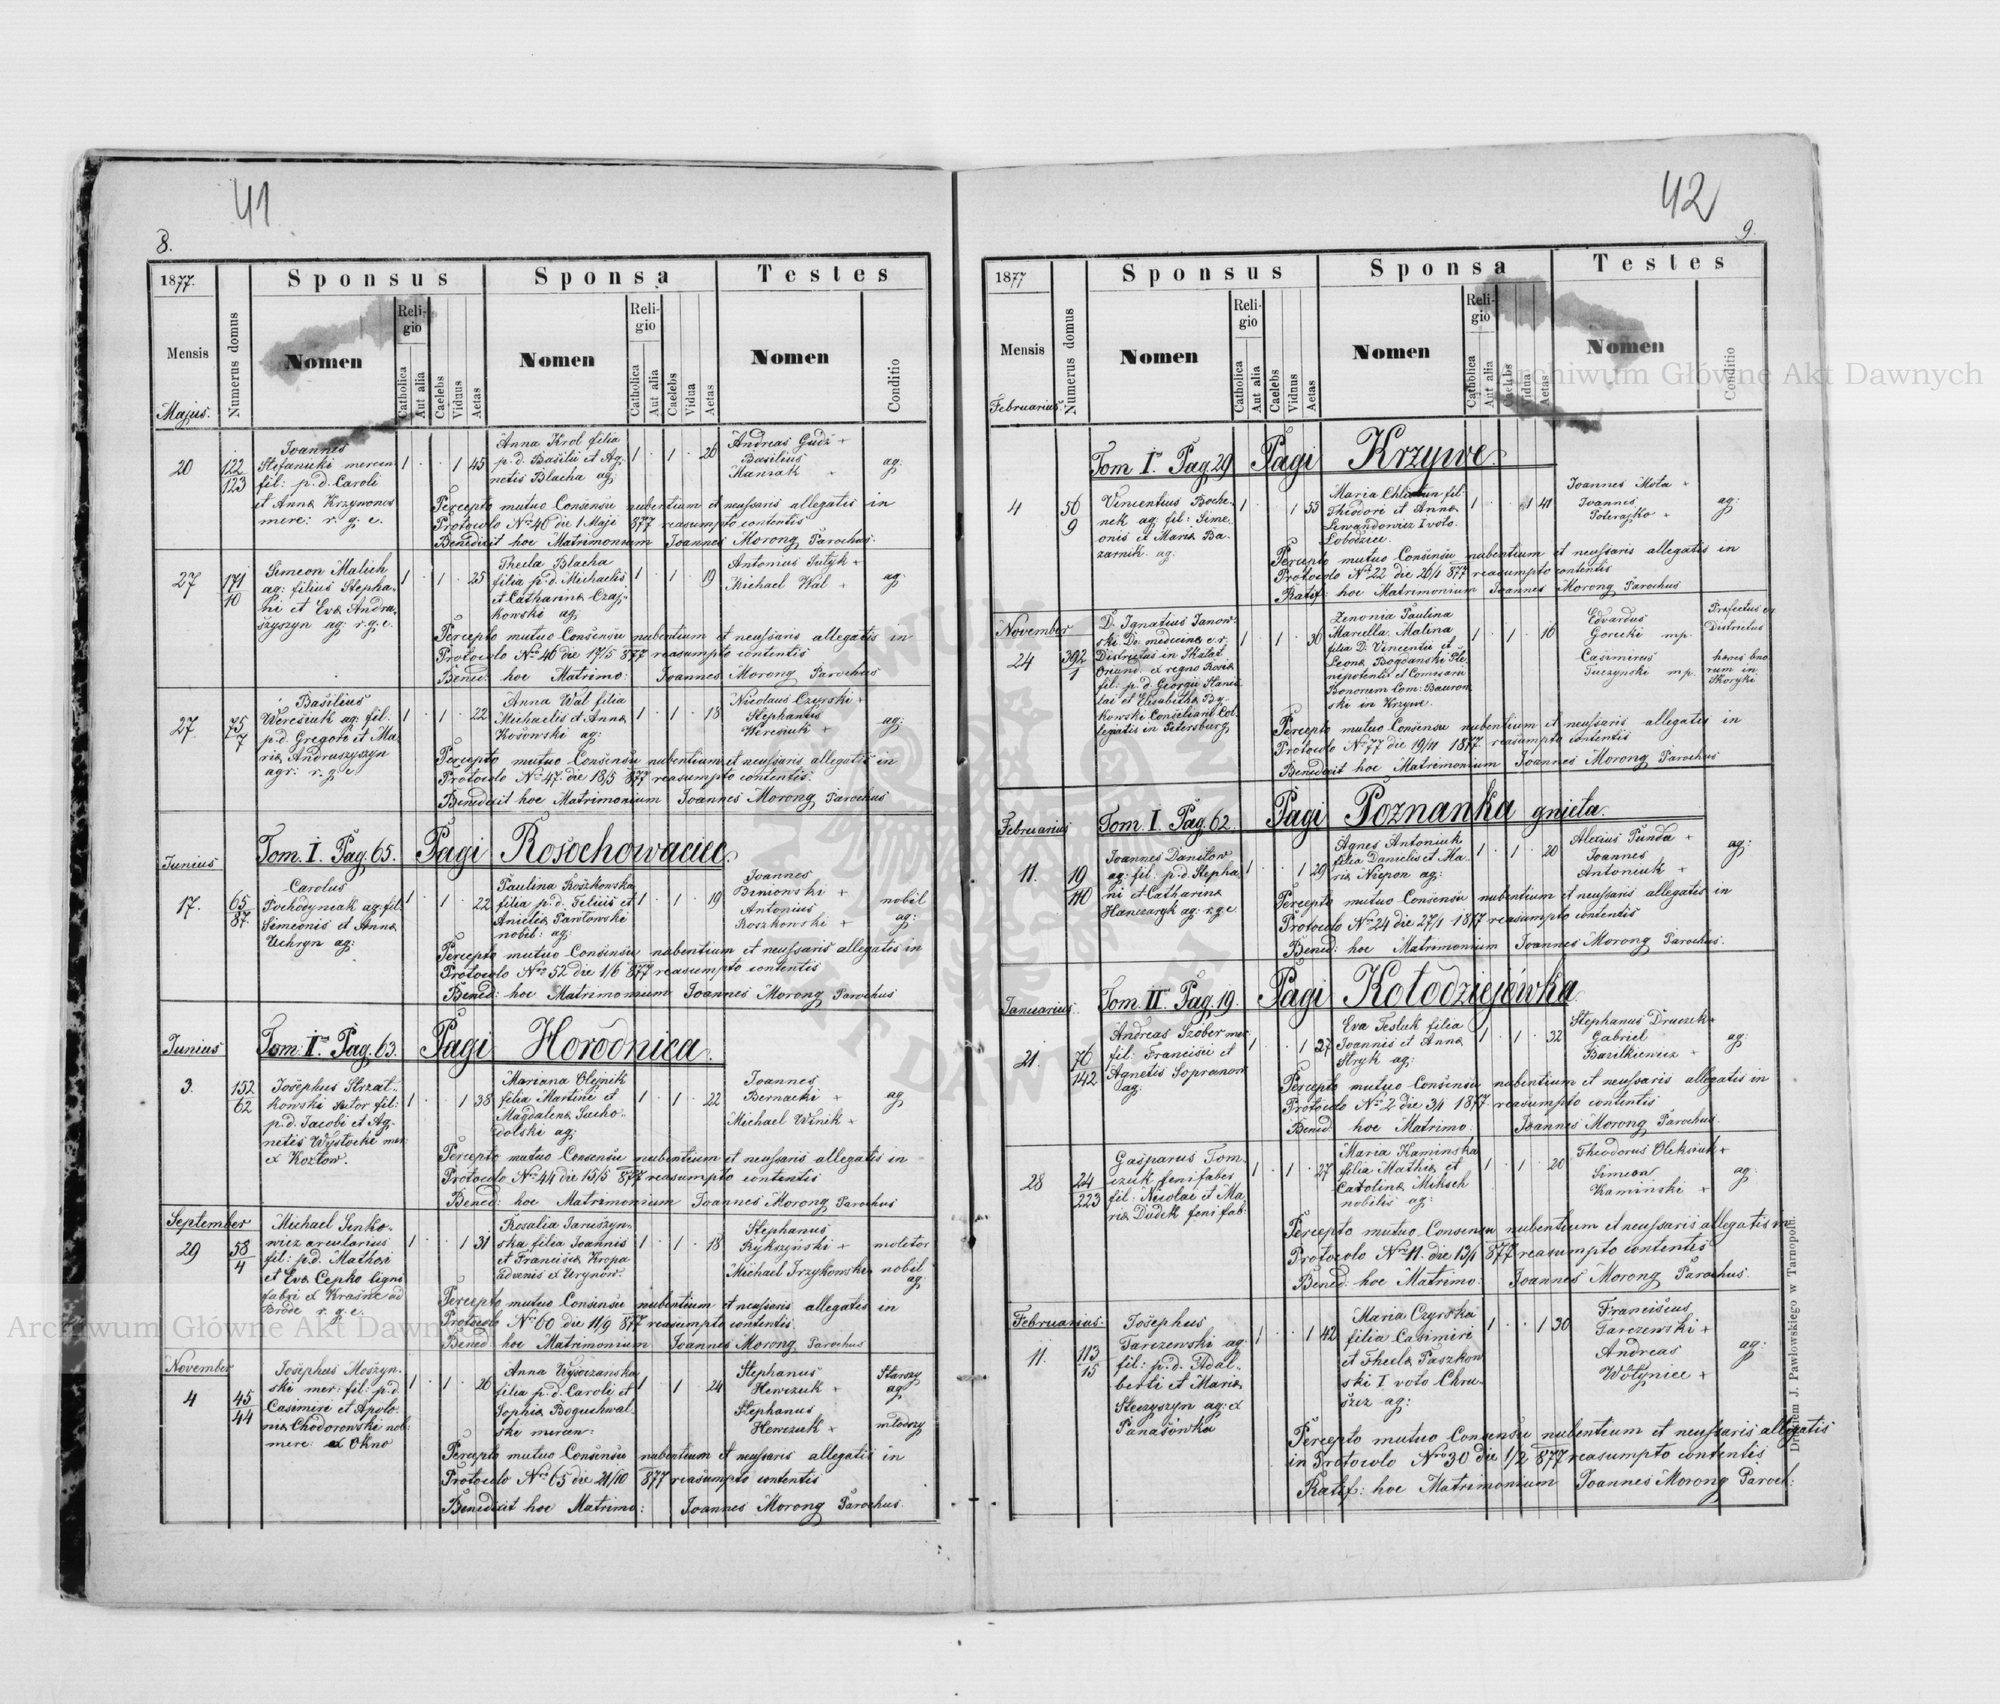 41
8.
1877.
Sponsus
Sponsa
Testes
Mensis
Numerus domus
Nomen
Religio
Catholica
Aut alia
Caelebs
Viduus
Aetas
Nomen
Religio
Catholica
Aut alia
Caelebs
Vidua
Aetas
Nomen
Conditio
Majus.
20
122
123
Joannes
Stefaniuki mercen
fil: p. d. Caroli
et Anna Krzywonos
merc: r. g. c.
1 . . 1 45
Anna Krol filia
p. d. Basilii et Ag-
netis Blacha ag:
1 . 1 . 26
Andreas Gudz +
Basilius
Maniak +
ag:
Percepto mutuo Consensu nubentium et neussaris allegatis in
Protocolo Nro 40 die 1 Maji 877 reasumpto contentis
Benedixit hoc Matrimonium Joannes Morong Parochus.
27
171
10
Simeon Malich
ag: filius Stepha-
ni et Eva Andru-
szyszyn ag: r. g. c.
1 . 1 . 25
Thecla Blacha
filia p. d. Michaelis
et Catharina Czaj-
kowski ag:
1 . 1 . 19
Antonius Sutyk +
Michael Wal +
ag:
Percepto mutuo Consensu nubentium et neussaris allegatis in
Protocolo Nro 46 die 17/5 877 reasumpto contentis
Bened: hoc Matrimo: Joannes Morong Parochus
27
75
7
Basilius
Weresiuk ag: fil.
p. d. Gregori et Ma-
ria Andruszyszyn
agr: r. g. c.
1 . 1 . 22
Anna Wal filia
Michaelis et Anna
Kosowski ag:
1 . 1 . 18
Nicolaus Czyrski +
Stephanus
Weresiuk +
ag:
Percepto mutuo Consensu nubentium et neussaris allegatis in
Protocolo Nro 47 die 18/5 877 reasumpto contentis.
Benedixit hoc Matrimonium Joannes Morong Parochus
Junius
Tom. I. Pag. 65. Pagi Rosochowaciec.
17.
65
87.
Carolus
Pochodyniak ag: fil.
Simeonis et Anna
Uchryn ag:
1 . 1 . 22
Paulina Roszkowska
filia p. d. Felicis et
Aniela Pawlowski
nobil: ag:
1 . 1 . 19
Joannes
Biniowski +
Antonius
Roszkowski +
nobil
ag:
Percepto mutuo Consensu nubentium et neussaris allegatis in
Protocolo Nro 52 die 1/6 877 reasumpto contentis
Bened: hoc Matrimonium Joannes Morong Parochus
Junius
Tom. I. Pag. 63. Pagi Horodnica.
3.
152
62
Josephus Strzal-
kowski Sutor fil:
p. d. Jacobi et Ag-
netis Wysłocki mer:
ex Kozłow.
1 . . 1 38
Mariana Olejnik
filia Martini et
Magdalena Sucho-
dolski ag:
1 . 1 . 22
Joannes
Bernacki +
Michael Winik +
ag
Percepto mutuo Consensu nubentium et neussaris allegatis in
Protocolo Nro 44 die 15/5 877 reasumpto contentis
Bened: hoc Matrimonium Joannes Morong Parochus
September
29
58
4
Michael Senko-
wicz arcularius
fil: p. d. Mathei
et Eva Cepko ligni
fabri ex Krasne ad
Brode r. g. c.
1 . . 1 31
Rosalia Jaruszyn-
ska filia Joannis
et Francisca Kropa
advenis ex Urynow.
1 . 1 . 18
Stephanus
Rykszynski +
Michael Trzykowski
molitor
nobil
ag:
Percepto mutuo Consensu nubentium et neussaris allegatis in
Protocolo Nro 60 die 11/9 877 reasumpto contentis.
Bened: hoc Matrimonium Joannes Morong Parochus
November
4
45
44
Josephus Moszyn-
ski mer: fil: p. d.
Casimiri et Apolo-
nia Chodorowski nob:
merc: ex Okno
1 . 1 . 26
Anna Wysoczanska
filia p. d. Caroli et
Sophia Boguchwal-
ski mercen:
1 . 1 24
Stephanus
Hewczuk +
Stephanus
Hewczuk +
Starszy
ag:
młodszy
Percepto mutuo Consensu nubentium et neussaris allegatis in
Protocolo Nro 65 die 21/10 877 reasumpto contentis
Benedixit hoc Matrimo: Joannes Morong Parochus.
42
9.
1877
Sponsus
Sponsa
Testes
Mensis
Numerus domus
Nomen
Religio
Catholica
Aut alia
Caelebs
Viduus
Aetas
Nomen
Religio
Catholica
Aut alia
Caelebs
Vidua
Aetas
Nomen
Conditio
Februarius.
Tom I. Pag. 29 Pagi Krzywe.
4
56
9
Vincentius Boche-
nek ag: fil: Sime-
onis et Maria Ba-
zarnik ag:
1 . . 1 55
Maria Chlistun fil:
Theodori et Anna
Lewandowicz I voto
Lobodziec.
1 . . 1 41
Joannes Mota +
Joannes
Poterajko +
ag:
Percepto mutuo Consensu nubentium et neussaris allegatis in
Protocolo Nro 22 die 26/1 877 reasumpto contentis
Ratif: hoc Matrimonium Joannes Morong Parochus
November
24
392
1
D. Ignatius Janow-
ski Dr. medicina c. r.
Districtus in Skałat
Oriund. ex regno Rosia
fil: p. d. Georgii
et Elisabetha By-
kowski Consiliarii Col-
legiatis in Petersburg
1 . 1 . 36
Zenonia Paulina
Marcella Malina
filia D. Vincentii et
Leona Bogdanski Ple-
nipotentis et Comisarii
Bonorum Com: Bawrow-
ski in Krzywe.
1 . 1 . 16
Edvardus
Gorecki mp.
Casimirus
Tuczynski mp.
Prefectus
Districtus
haeres bno-
rum in
Skoryki
Percepto mutuo Consensu nubentium et neussaris allegatis in
Protocolo Nro 77 die 19/11 1877 reasumpto contentis
Benedixit hoc Matrimonium Joannes Morong Parochus
Februarius
Tom. I. Pag. 62. Pagi Poznanka gnieta.
11.
19
110
Joannes Danilow
ag: fil: p. d. Stepha-
ni et Catharina
Hanczaryk ag: r. g. c
1 . . 1 29
Agnes Antoniuk
filia Danielis et Ma-
ria Niepon ag:
1 . 1 . 20
Alexius Punda +
Joannes
Antoniuk +
ag:
Percepto mutuo Consensu nubentium et neussaris allegatis in
Protocolo Nro 24 die 27/1 1877 reasumpto contentis
Bened: hoc Matrimonium Joannes Morong Parochus.
Januarius.
Tom. II. Pag. 19. Pagi Kołodziejówka
21.
76
142
Andreas Szober mer:
fil: Francisci et
Agnetis Sopranow
ag:
1 . . 1 27
Eva Tesluk filia
Joannis et Anna
Stryk ag:
1 . 1 . 32
Stephanus Druczek +
Gabriel
Bazilkiewicz +
ag:
Percepto mutuo Consensu nubentium et neussaris allegatis in
Protocolo Nro 2 die 3/1 1877 reasumpto contentis
Bened: hoc Matrimo: Joannes Morong Parochus.
28
24
223
Gasparus Tom-
czuk fenifaber
fil: Nicolai et Ma-
ria Dudek fenifab:
1 . 1 . 27
Maria Kaminska
filia Mathia et
Carolina Miksch
nobilis ag:
1 . 1 . 20
Theodorus Oleksiuk +
Simeon
Kamiński +
ag:
Percepto mutuo Consensu nubentium et neussaris allegatis in
Protocolo Nro 11. die 13/1 877 reasumpto contentis
Bened: hoc Matrimo: Joannes Morong Parochus.
Februarius.
11.
113
15
Josephus
Tarczewski ag:
fil: p. d. Adal-
berti et Maria
Steczyszyn ag: ex
Panasówka
1 . . 1 42
Maria Czyrska
filia Casimiri
et Thecla Paszkow-
ski I voto Chru-
ścicz ag:
1 . . 1 30
Franciscus
Tarczewski +
Andreas
Wołyniec +
ag:
Percepto mutuo Consensu nubentium et neussaris allegatis
in Protocolo Nro 30 die 1/2 877 reasumpto contentis
Ratif: hoc Matrimonium Joannes Morong Paroch:
Drukiem J. Pawłowskiego w Tarnopolu.
Archiwum Główne Akt Dawnych
Archiwum Główne Akt Dawnych